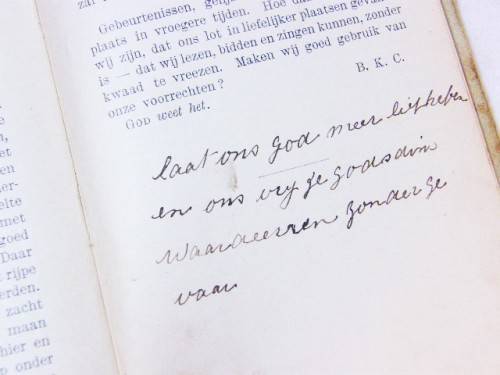 Gebeurtenissen, 
plaats in vroegere tijden. Hoe
wij zijn, dat ons lot in liefelijker plaatsen
is — dat wij lezen, bidden en zingen kunnen, zonder
kwaad te vreezen. Maken wij goed gebruik van
onze voorrechten?
B. K. C.
GOD weet het.
laat ons god meer liefheben
en ons vrye godsdins
waardeerren zonder ge
vaar
et
elte
met
goed
Daar
rijpe
erden.
zacht
maan
hier en
op onder